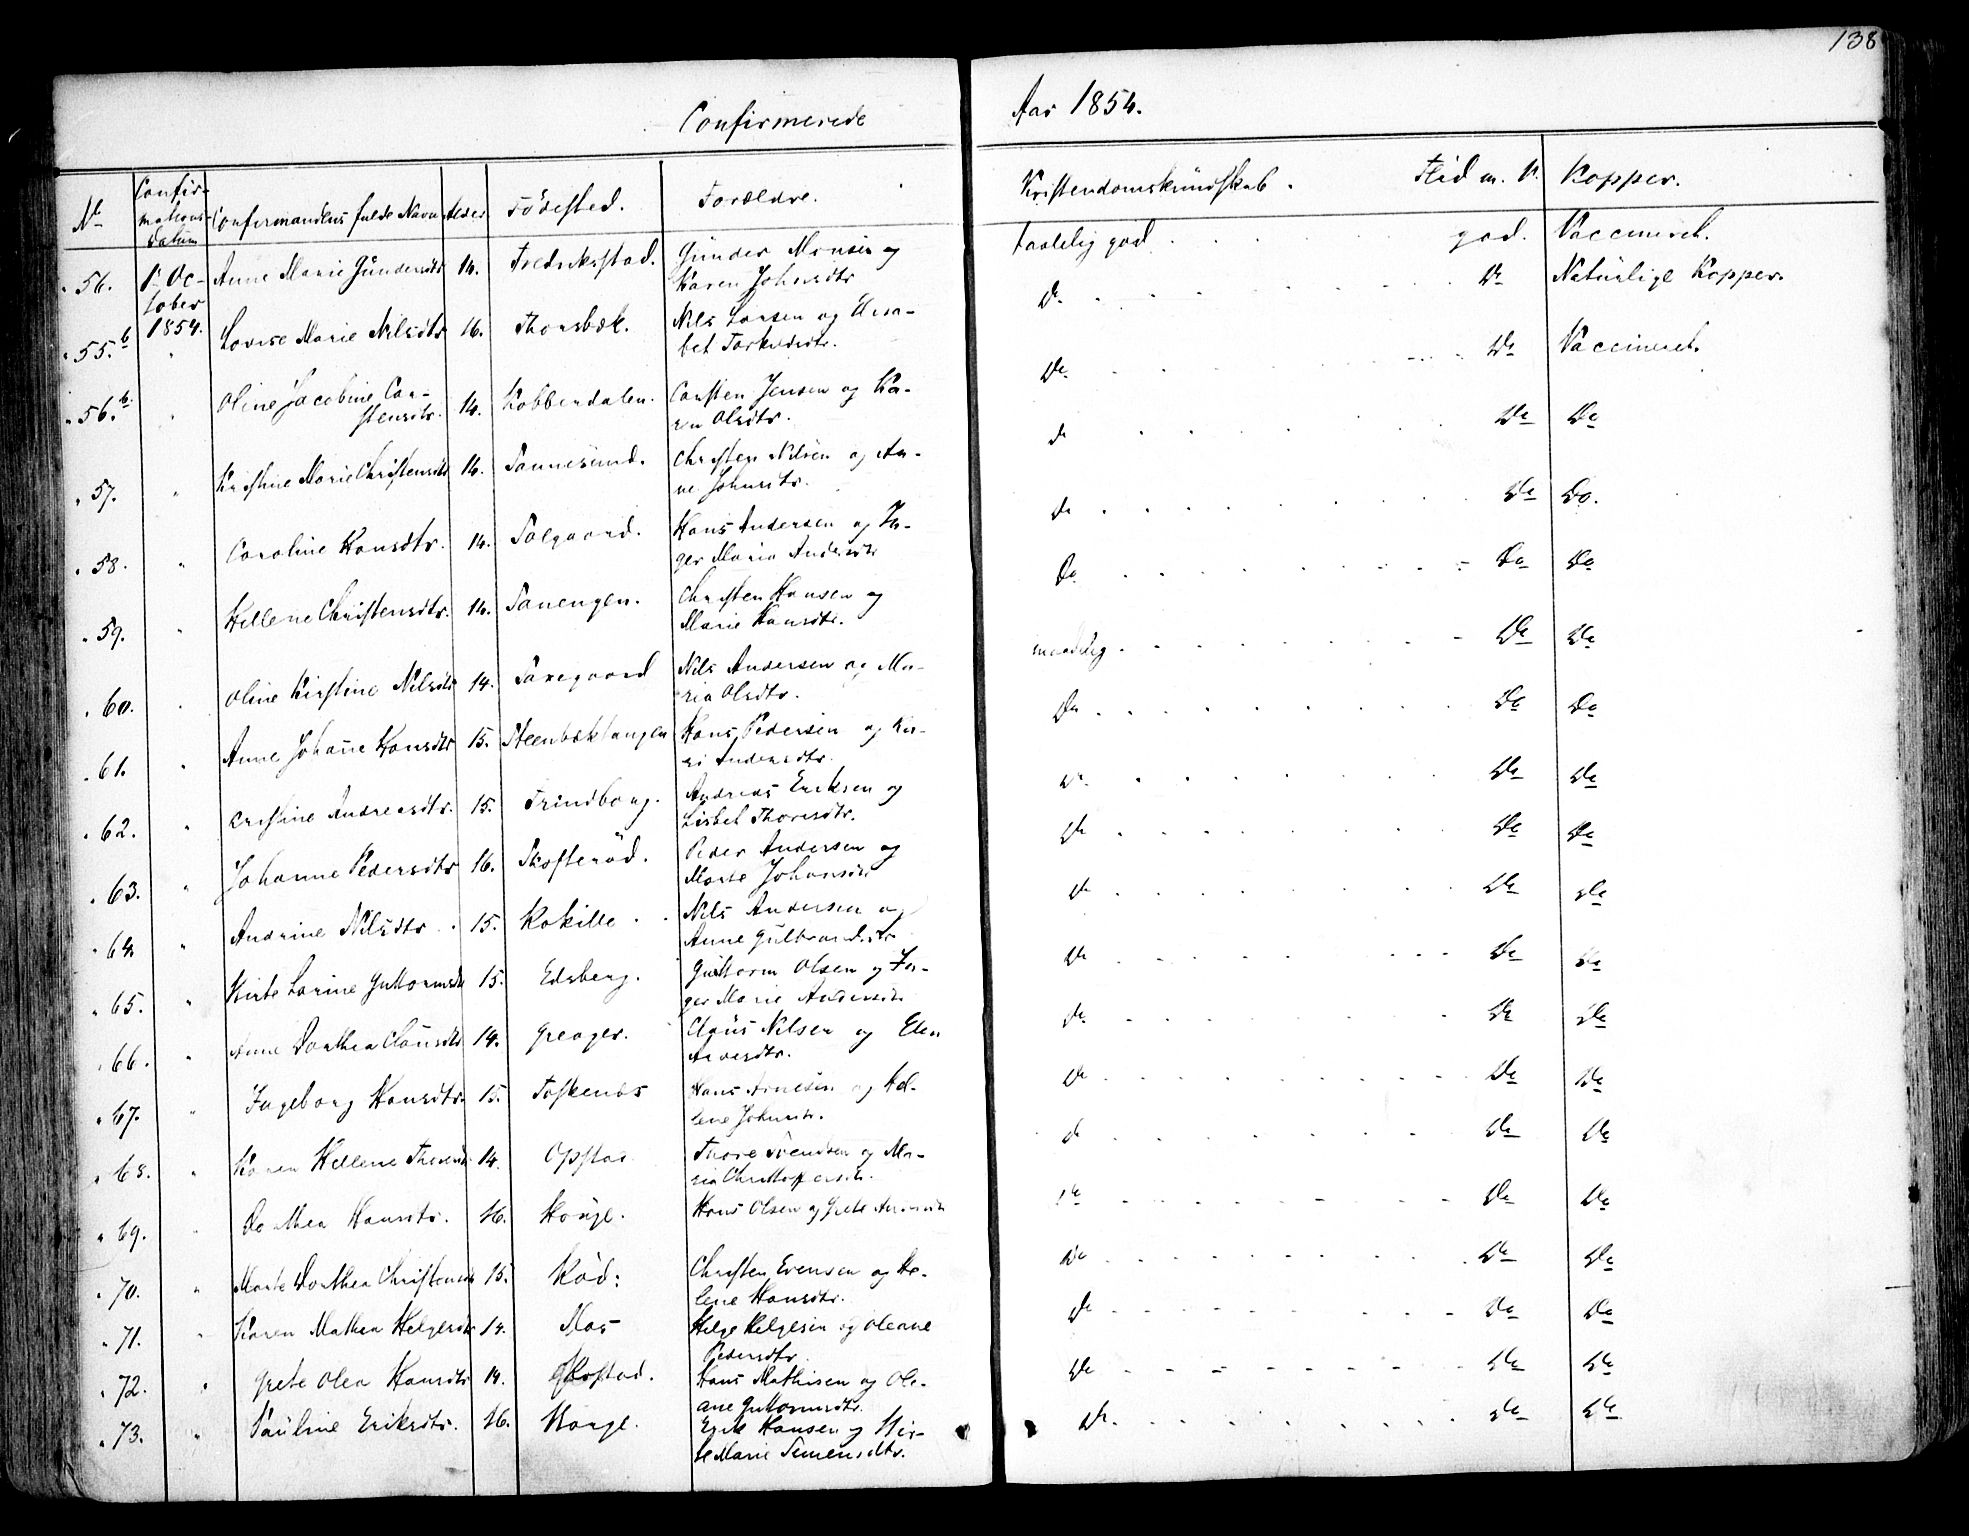 138
Confirmerede Aar 1854.
No Confirmations Datum Confirmandens fulde Navn Alder Födested. Forældre. Kristendomskundskab. Flid m. V. Kopper.
56. 1 October 1854. Anne Marie Gundersdtr 14. Fredrikstad. Gunder Monsen og taalelig god god. Vaccineret.
Karen Johnsdtr
55.b " Lovise Marie Nilsdtr 16. Thorsbæk. Nils Larsen og Elisa- Do Do Naturlige Kopper.
bet Torkildsdtr.
56.b " Oline Jacobine Car- 14. Kobberdalen. Carsten Jensen og Ka- Do Do Vaccineret.
stensdtr. ren Olsdtr.
57. " Kristine Marie Christensdtr 14. Tannesund. Christen Nilsen og An- Do Do Do
ne Johnsdtr.
58. " Caroline Hansdtr. 14. Hans Andersen og In- Do Do Do.
ger Maria Andersdtr
59. " Hellene Christensdtr. 14. Christen Hansen og Do Do Do
Marie Hansdtr.
60. " Oline Kirstine Nilsdtr 14. Nils Andersen og Ma- maadelig Do Do
ria Olsdtr.
61. " Anne Johane Hansdtr 15. Steenbæktangen Hans Pedersen og Ka- Do Do Do
ri Andersdtr.
62. " Cristine Andreasdtr. 15. Trindborg. Andreas Eriksen og Do Do Do
Lisbet Thoresdtr.
63. " Johanne Pedersdtr 16. Skofteröd. Peder Andersen og Do Do Do
Marte Johansdtr
64 " Andrine Nilsdtr. 15. Kokille. Nils Andersen og Do Do Do
Anne Gulbrandsdtr
65. " Kirte Larine Guttormsdtr 15. Edsberg. Guttorm Olsen og In- Do Do Do
ger Marie Andersdtr
66. " Anne Dorthea Clausdtr 14. Greager. Claus Nilsen og Elen Do Do Do
Arvesdtr.
67. " Ingeborg Hansdtr. 15. Torskenes Hans Arnesen og Hel- Do Do Do
lene Johnsdtr.
68. " Karen Hellene Thoresdtr 14. Opstad Thore Svendsen og Ma- Do Do Do
ria Christoffersdtr.
69. " Dorthea Hansdtr. 16. Hauge. Hans Olsen og Grete Do Do Do
70. " Marte Dorthea Christensdtr 15. Röd: Christen Evensen og He- Do Do Do
lene Hansdtr.
71. " Karen Mathea Helgesdtr 14. Mos Helge Helgesen og Oleane Do Do Do
Pedersdtr
72. " Grete Olea Hansdtr 14. Hans Mathisen og Ole- Do Do Do
ane Guttormsdtr.
73. " Pauline Eriksdtr. 16. Hauge. Erik Hansen og Kir- Do Do Do
te Marie Simensdtr.